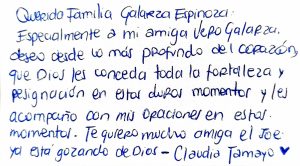 Querido Familia Galarza Espinoza.
Especialmente a mi amiga Vero Galarza,
deseo desde lo más profundo del corazón,
que Dios les conceda toda la fortaleza y
resignación en estos duros momentos y les
acompaño con mis oraciones en estos
momentos. Te quiero mucho amiga el Joe
ya está gozando de Dios - Claudia Tamayo ♥